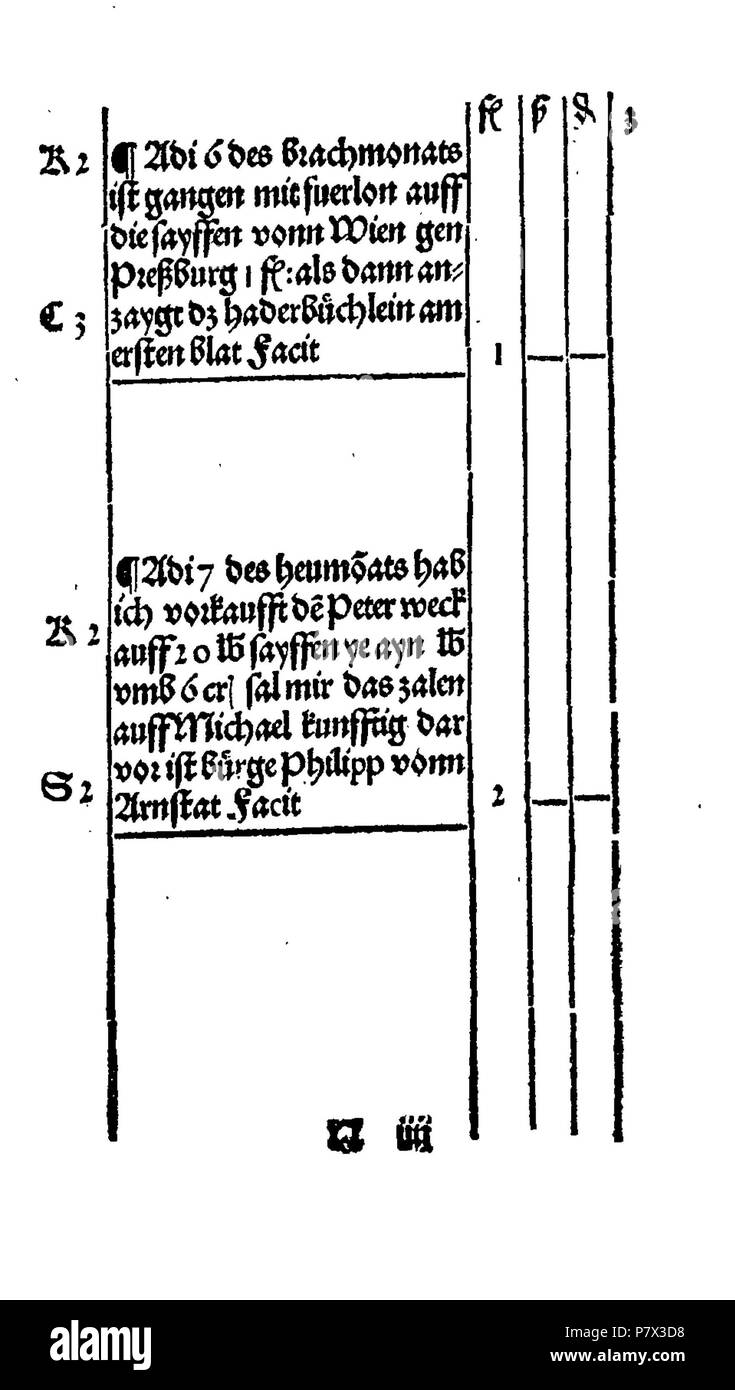 fl ß ₰
K 2 ¶ Adi 6 des brachmonats
ist gangen mit fuerlon auff
die sayffen vonn Wien gen
Preßburg 1 fl: als dann an⸗
C 3 zaygt dz haderbüchlein am
ersten blat Facit 1 — —
¶ Adi 7 des heumõats hab
ich vorkaufft dẽ Peter weck
K 2 auff 20 lb sayffen ye ayn lb
vmb 6 crl sal mir das zalen
auff Michael kunfftig dar
vor ist bürge Philipp vonn
S 2 Arnstat Facit 2 — —
iiij
alamy
Image ID: P7X3D8
www.alamy.com